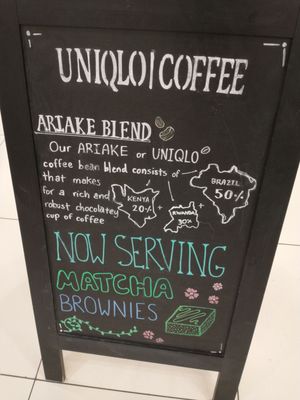 UNIQLO | COFFEE
ARIAKE BLEND
Our ARIAKE or UNIQLO
coffee bean blend consists of
that makes
for a rich and
robust chocolatey
cup of coffee
KENYA
20%
+
RWANDA
30%
+
BRAZIL
50%
NOW SERVING
MATCHA
BROWNIES